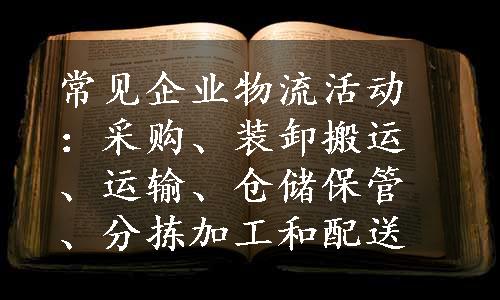 常见企业物流活动
：采购、装卸搬运
、运输、仓储保管
、分拣加工和配送